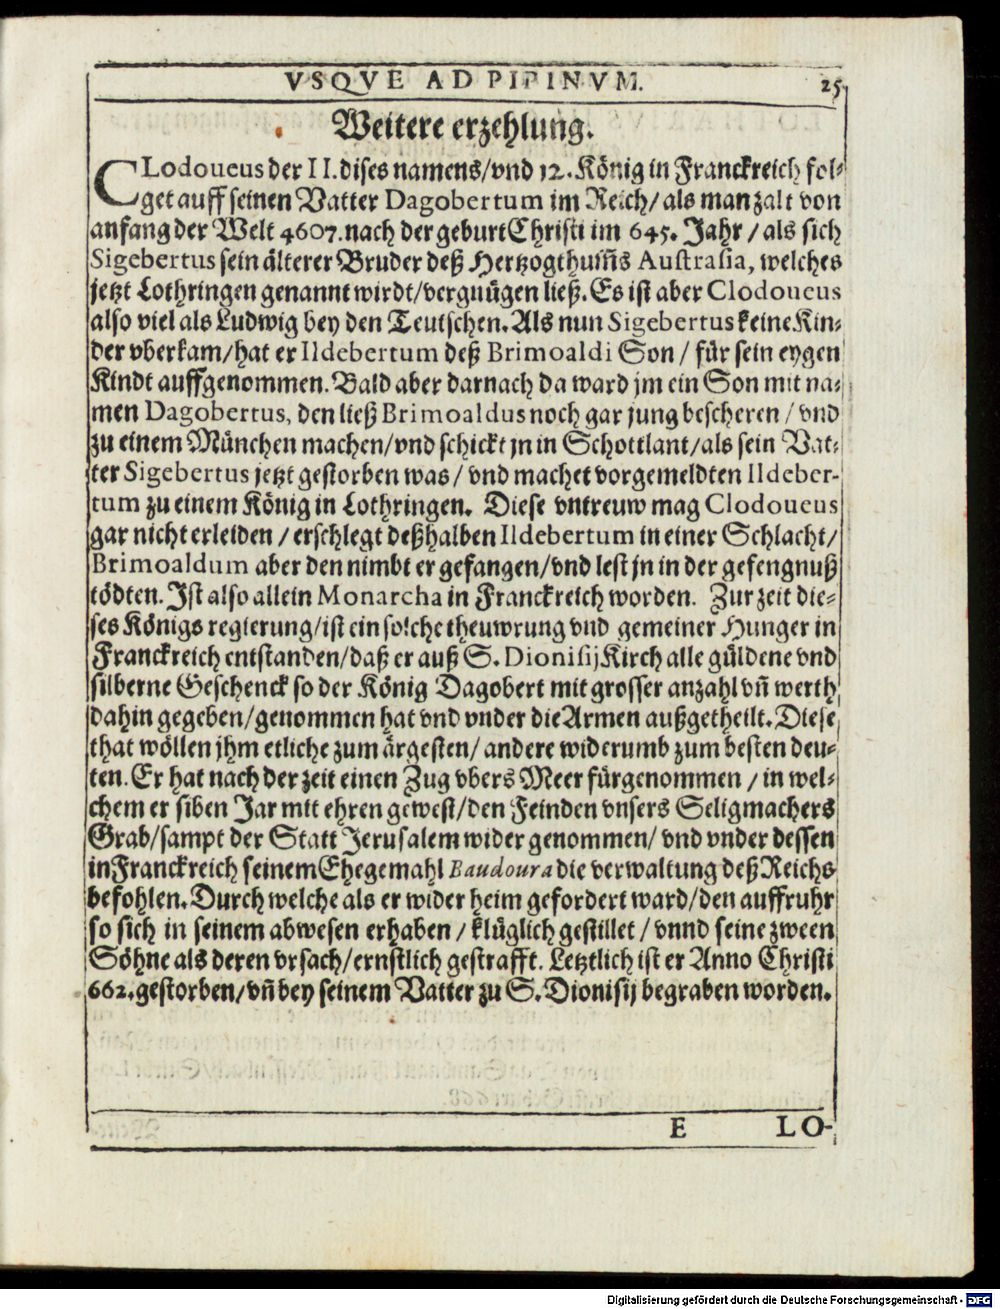 VSQVE AD PIPINVM. 25
Weitere erzehlung.
CLodoueus der II. dises namens/vnd 12. König in Franckreich fol-
get auff seinen Vatter Dagobertum im Reich/ als man zalt von
anfang der Welt 4607. nach der geburt Christi im 645. Jahr / als sich
Sigebertus sein älterer Bruder deß Hertzogthum̃s Austrasia, welches
jetzt Lothringen genannt wirdt/vergnügen ließ. Es ist aber Clodoueus
also viel als Ludwig bey den Teutschen. Als nun Sigebertus keine Kin-
der vberkam/hat er Ildebertum deß Brimoaldi Son / für sein eygen
Kindt auffgenommen. Bald aber darnach da ward jm ein Son mit na-
men Dagobertus, den ließ Brimoaldus noch gar jung bescheren / vnd
zu einem München machen/vnd schickt jn in Schottlant/als sein Vat-
ter Sigebertus jetzt gestorben was / vnd machet vorgemeldten Ildeber-
tum zu einem König in Lothringen. Diese vntreuw mag Clodoueus
gar nicht erleiden / erschlegt deßhalben Ildebertum in einer Schlacht/
Brimoaldum aber den nimbt er gefangen/vnd lest jn in der gefengnuß
tödten. Ist also allein Monarcha in Franckreich worden. Zur zeit die-
ses Königs regierung/ist ein solche theuwrung vnd gemeiner Hunger in
Franckreich entstanden/daß er auß S. Dionisij Kirch alle güldene vnd
silberne Geschenck so der König Dagobert mit grosser anzahl vñ werth
dahin gegeben/genommen hat vnd vnder die Armen außgetheilt. Diese
that wöllen jhm etliche zum ärgesten/ andere widerumb zum besten deu-
ten. Er hat nach der zeit einen Zug vbers Meer fürgenommen / in wel-
chem er siben Jar mit ehren gewest/den Feinden vnsers Seligmachers
Grab/sampt der Statt Jerusalem wider genommen/ vnd vnder dessen
in Franckreich seinem Ehegemahl Baudoura die verwaltung deß Reichs
befohlen. Durch welche als er wider heim gefordert ward/den auffruhr
so sich in seinem abwesen erhaben / klüglich gestillet / vnnd seine zween
Söhne als deren vrsach/ernstlich gestrafft. Letztlich ist er Anno Christi
662. gestorben/vñ bey seinem Vatter zu S. Dionisij begraben worden.
E LO-
Digitalisierung gefördert durch die Deutsche Forschungsgemeinschaft - DFG